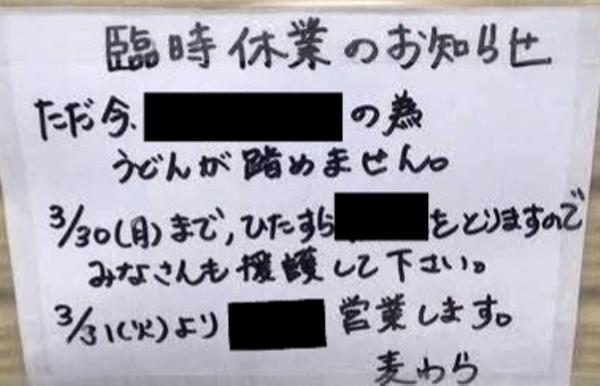 臨時休業のお知らせ
ただ今、の為
うどんが踏めません。
3/30(月)まで,ひたすらをとりますので
みなさんも援護して下さい。
3/31(火)より 営業します。
麦わら